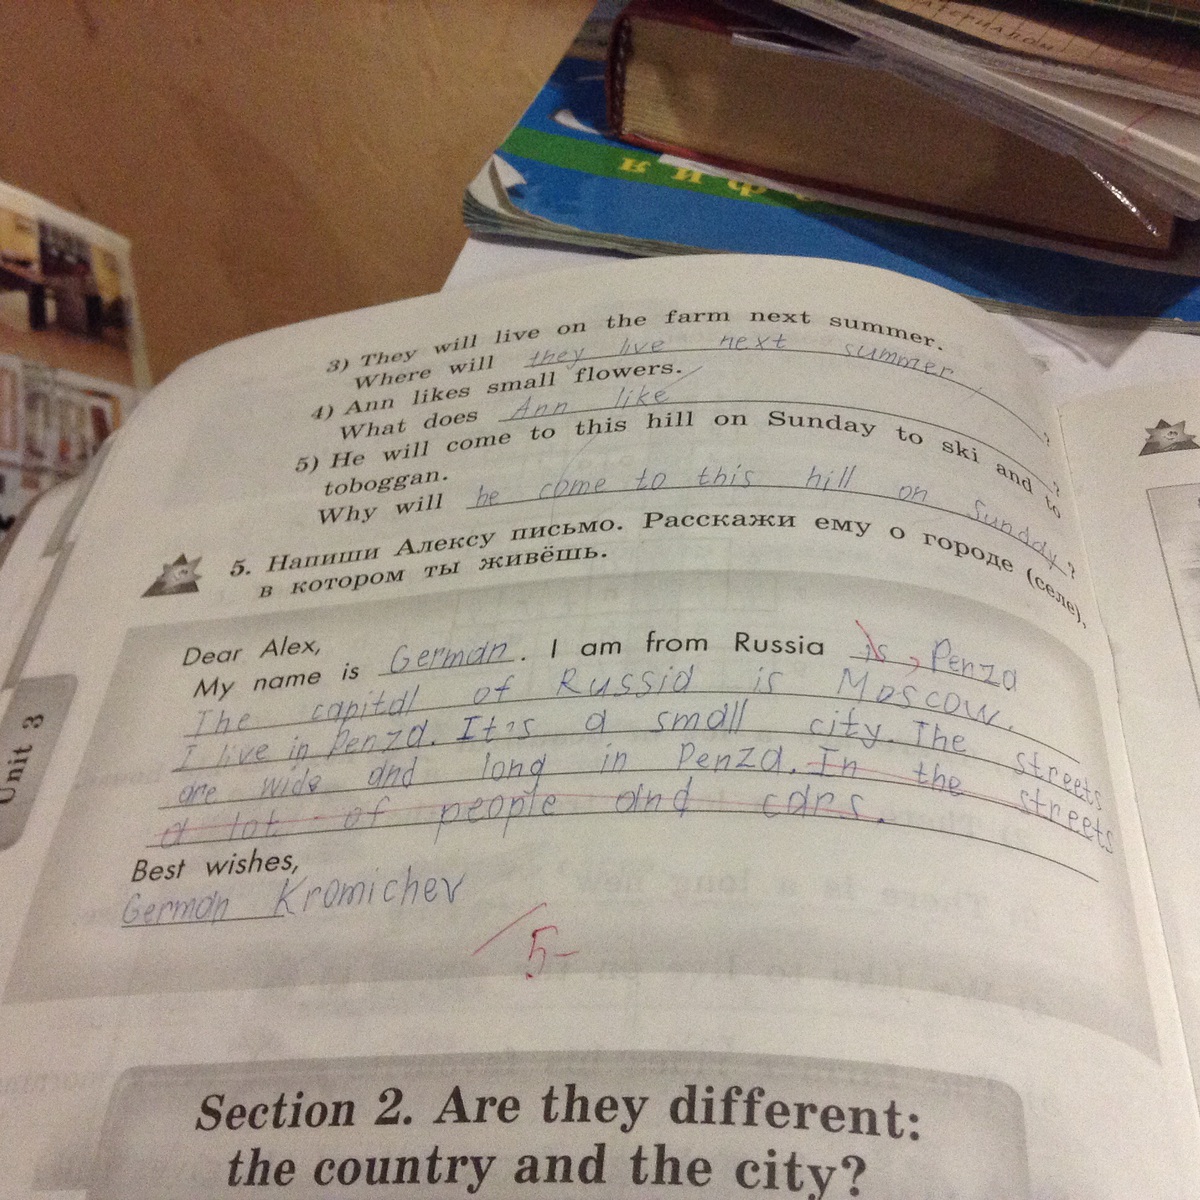 к и ф
3) They will live on the farm next summer.
Where will they live next summer ?
4) Ann likes small flowers.
What does Ann like ?
5) He will come to this hill on Sunday to ski and to
toboggan.
Why will he come to this hill on Sunday ?
5. Напиши Алексу письмо. Расскажи ему о городе (селе),
в котором ты живёшь.
Dear Alex,
My name is German. I am from Russia is , Penza
The capital of Russia is Moscow.
I live in Penza. It's a small city. The streets
are wide and long in Penza. In the streets
a lot of people and cars.
Best wishes,
German Kromichev
5-
Unit 3
Section 2. Are they different:
the country and the city?